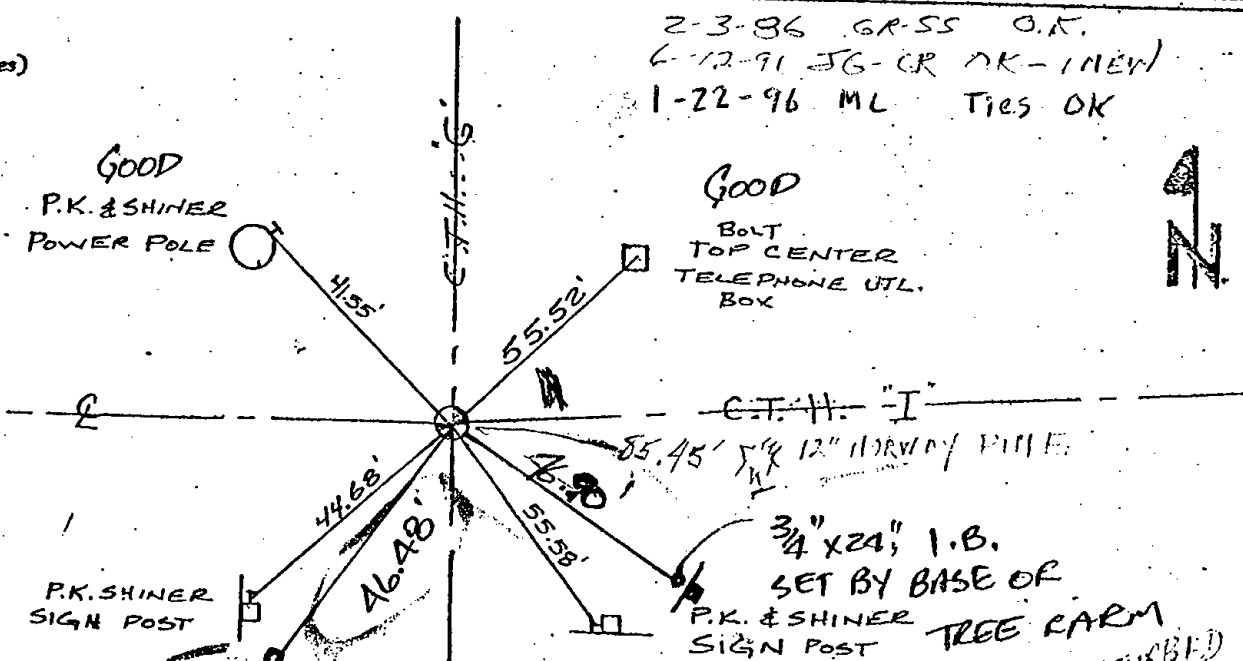 2-3-86 GR-SS O.K.
es)
6-12-91 JG-CR OK-(NEW)
1-22-96 ML Ties OK
GOOD
P.K. & SHINER
POWER POLE
C.T.H. "G"
GOOD
BOLT
TOP CENTER
TELEPHONE UTL.
BOX
N
41.55'
55.52'
C.T.H. "I"
85.45' 12" NORWAY PINE
44.68'
46.48'
55.58'
3/4" X 24" I.B.
SET BY BASE OF
TREE FARM
P.K. SHINER
SIGN POST
P.K. & SHINER
SIGN POST